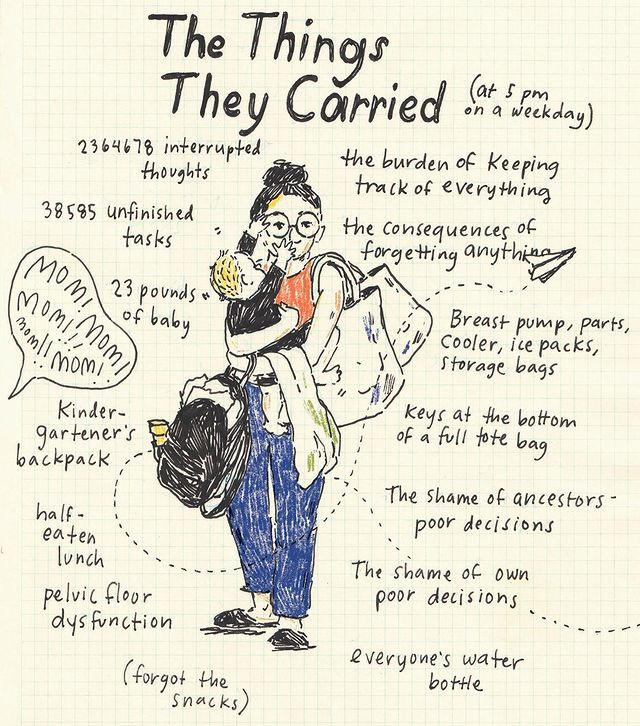 The Things
They Carried
(at 5 pm
on a weekday)
2364678 interrupted
thoughts
38585 unfinished
tasks
23 pounds
of baby
MOM!
MOM!
MOM!
MOM!!
MOM!
Kinder-
gartener's
backpack
half-
eaten
lunch
pelvic floor
dysfunction
(forgot the
snacks)
the burden of keeping
track of everything
the consequences of
forgetting anything
Breast pump, parts,
Cooler, ice packs,
storage bags
Keys at the bottom
of a full tote bag
The shame of ancestors-
poor decisions
The shame of own
poor decisions
everyone's water
bottle